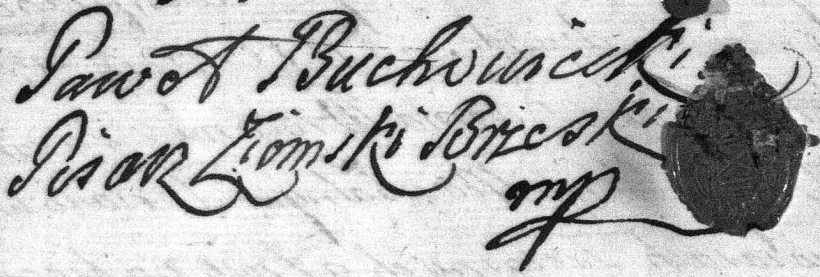 Paweł Buchowiecki
Pisarz Ziomski Brzeski
mp